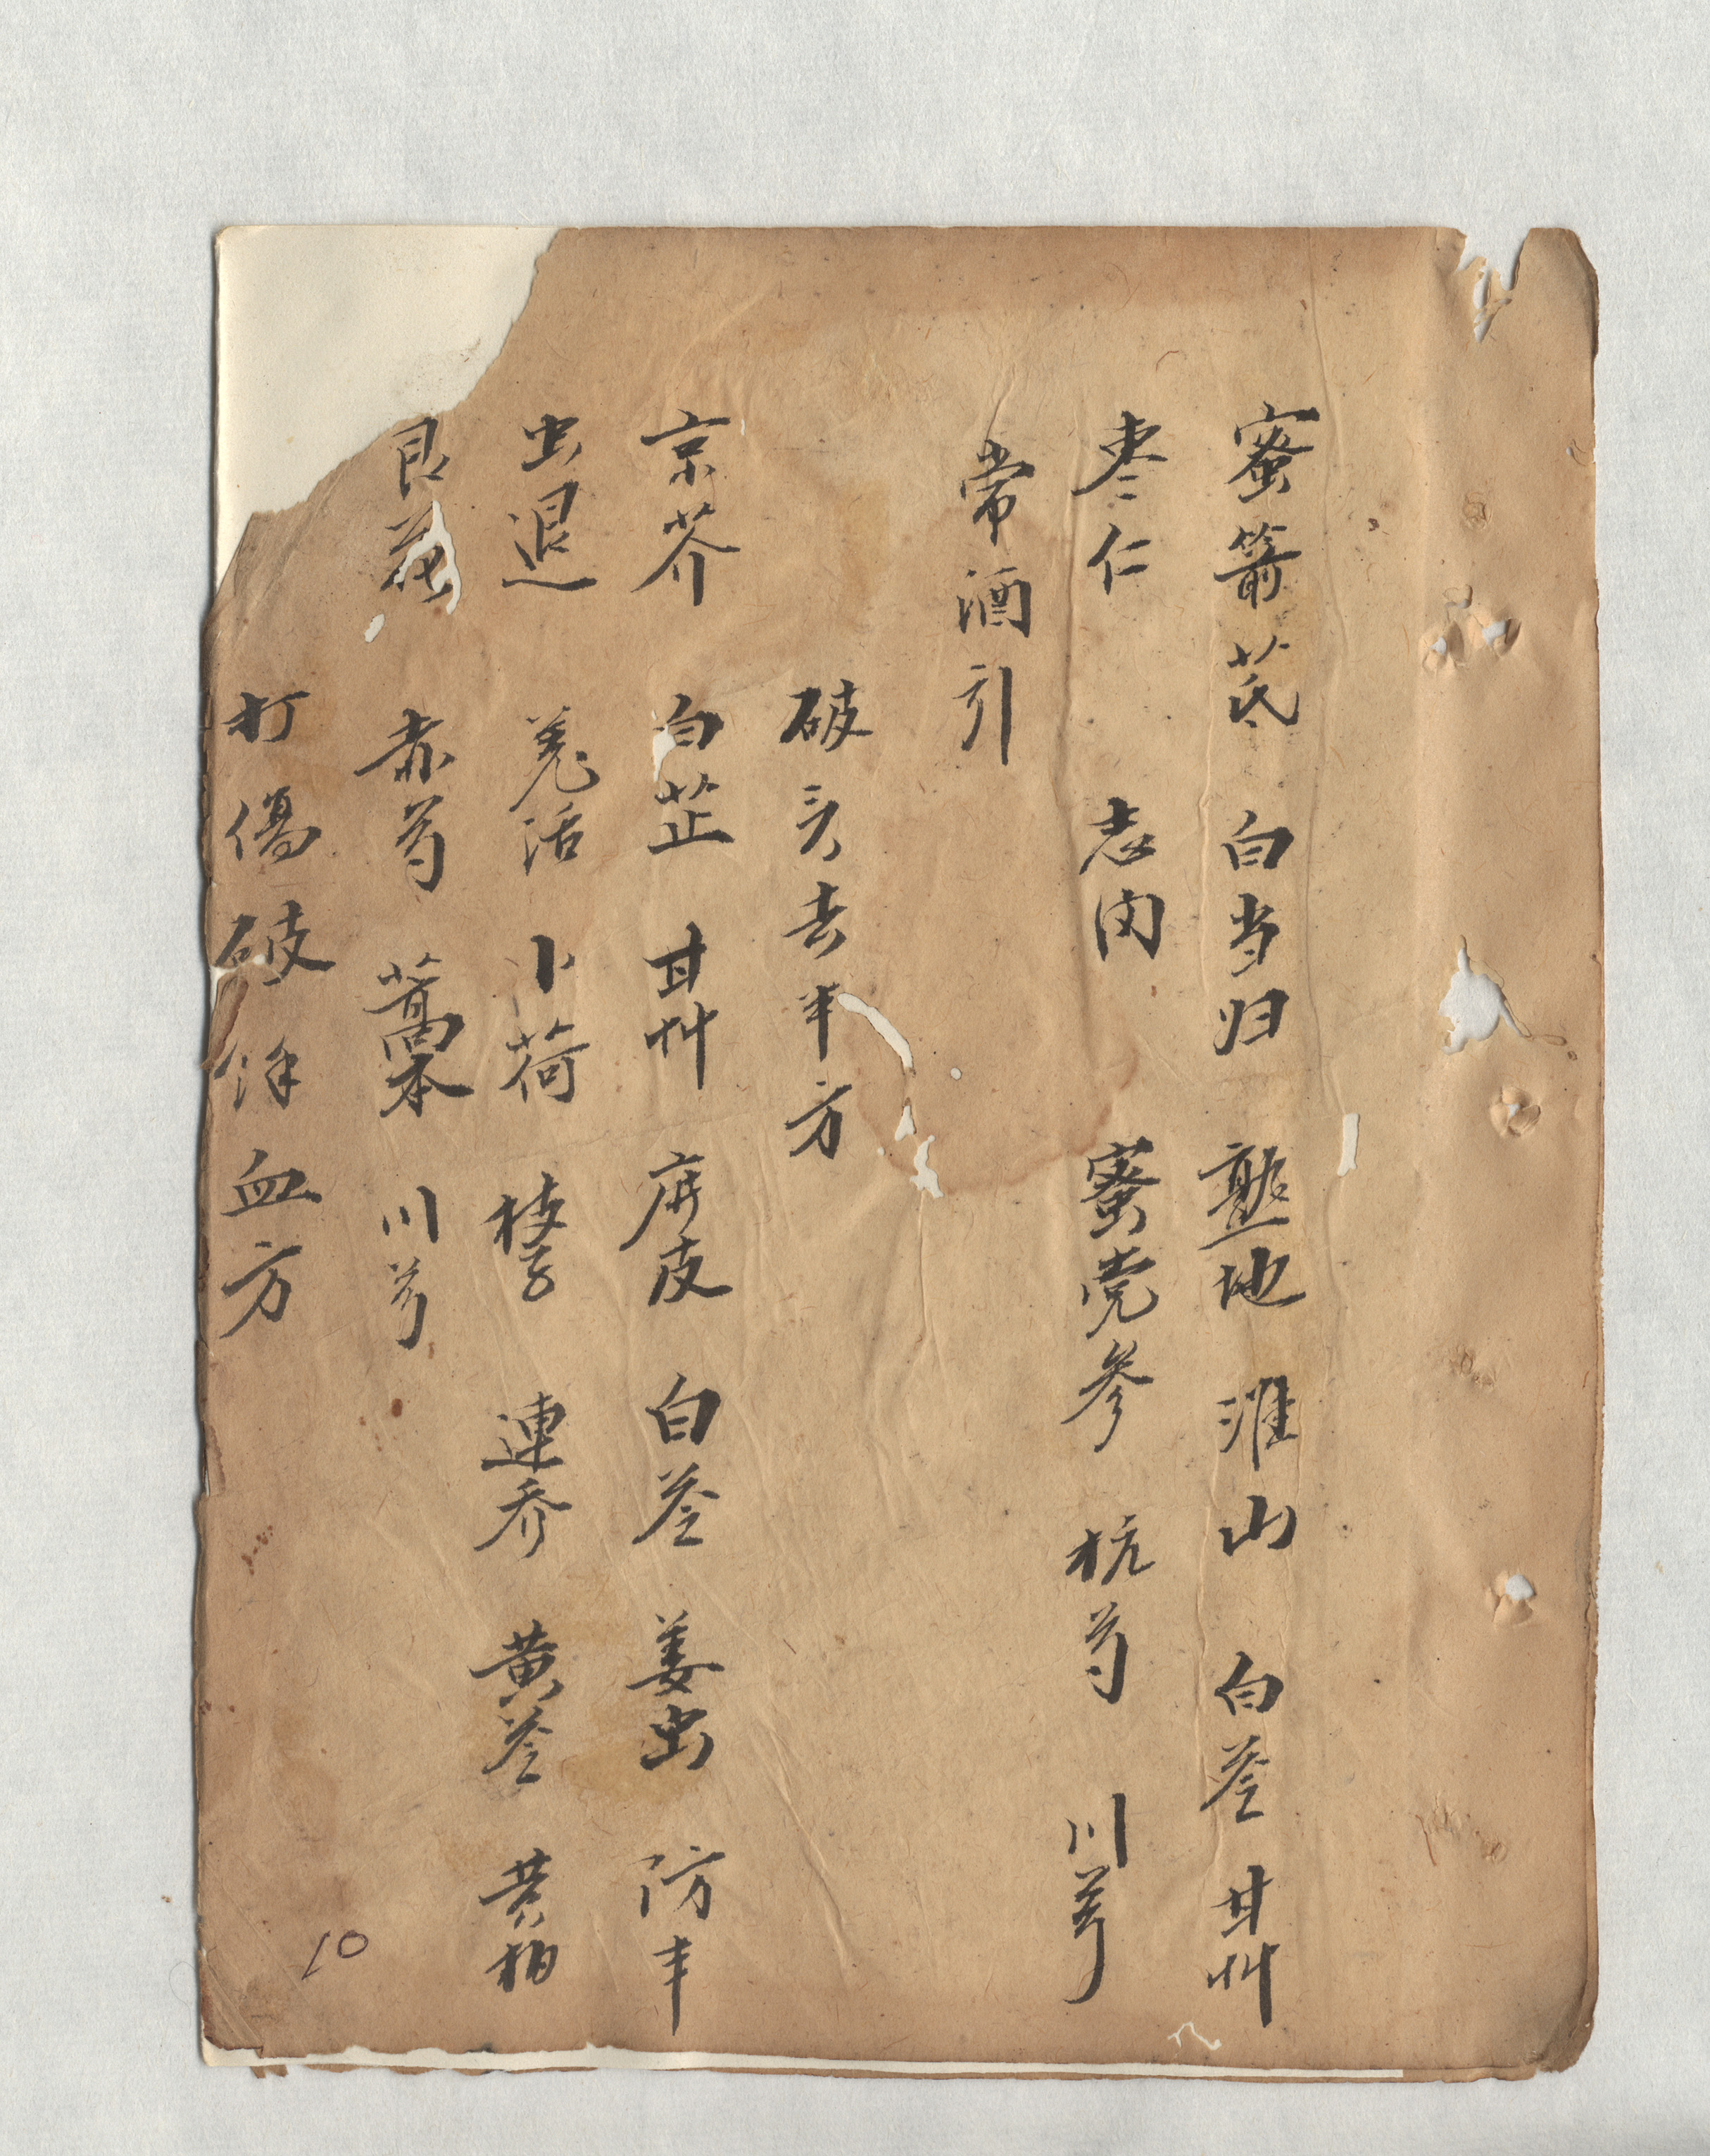 蜜箭芪 白当归 熟地 淮山 白苓 甘艸
枣仁 志肉 蜜党参 杭芍 川芎
常酒引
破头去半方
京芥 白芷 甘艸 皮 白苓 姜虫 防丰
虫退 羌活 卜荷 枝子 連乔 黄苓 黄柏
艮花 赤芍 藁本 川芎
打傷破 血方
10